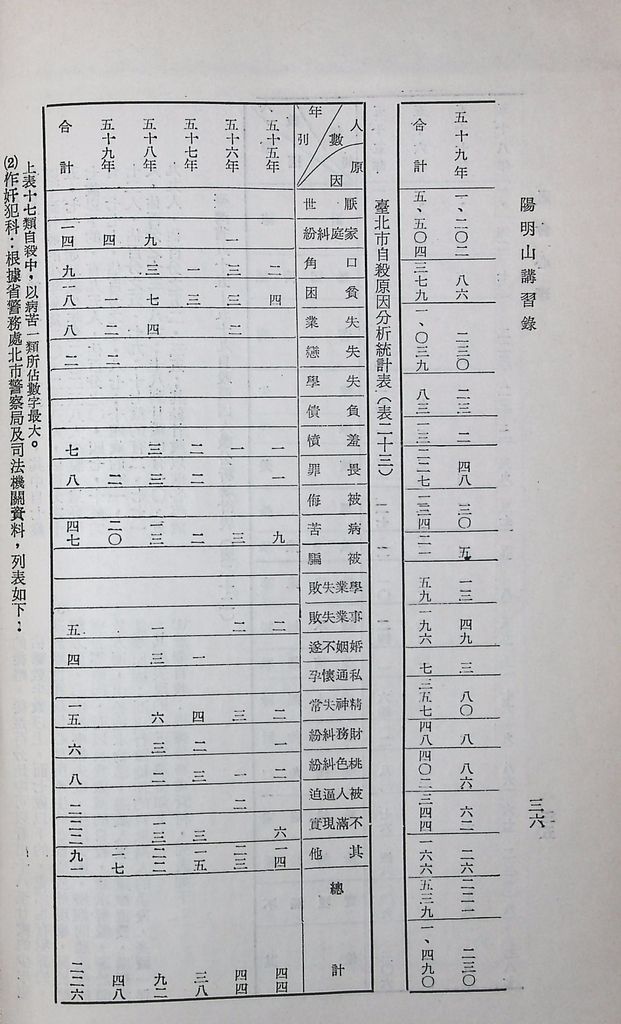 陽明山講習錄
三六
五十九年 一、二〇二 八六 二三〇 二三 二 四八 三〇 五 一三 四九 三 八〇 八 八六 六二 二六 二二一 二三〇
合計 五、五〇四 三七九 一、〇三九 八三 一三 二二七 一三四 二一 五九 一九六 七 三五七 四八 四〇二 三四四 一六六 五三九 一、四九〇
臺北市自殺原因分析統計表（表二十三）
年列 人數 原因 厭世 家庭糾紛 口角 貧困 失業 失戀 失學 負債 羞憤 畏罪 被侮 病苦 被騙 學業失敗 事業失敗 婚姻不遂 私通懷孕 精神失常 財務糾紛 桃色糾紛 被人逼迫 不滿現實 其他 總計
五十五年 四 一 一 九 二 二 一 二 六 一四 四四
五十六年 一 三 三 二 一 三 二 三 一 二 二三 四四
五十七年 一 三 二 二 二 一 四 二 三 三 一五 三八
五十八年 九 三 七 四 三 三 一三 一 三 六 三 二 一三 二二 九二
五十九年 四 一 二 二 二 二〇 一七 四八
合計 一四 九 一八 八 二 七 八 四七 五 四 一五 六 八 二 二二 九一 二二六
上表十七類自殺中，以病苦一類所佔數字最大。
⑵作奸犯科：根據省警務處北市警察局及司法機關資料，列表如下：